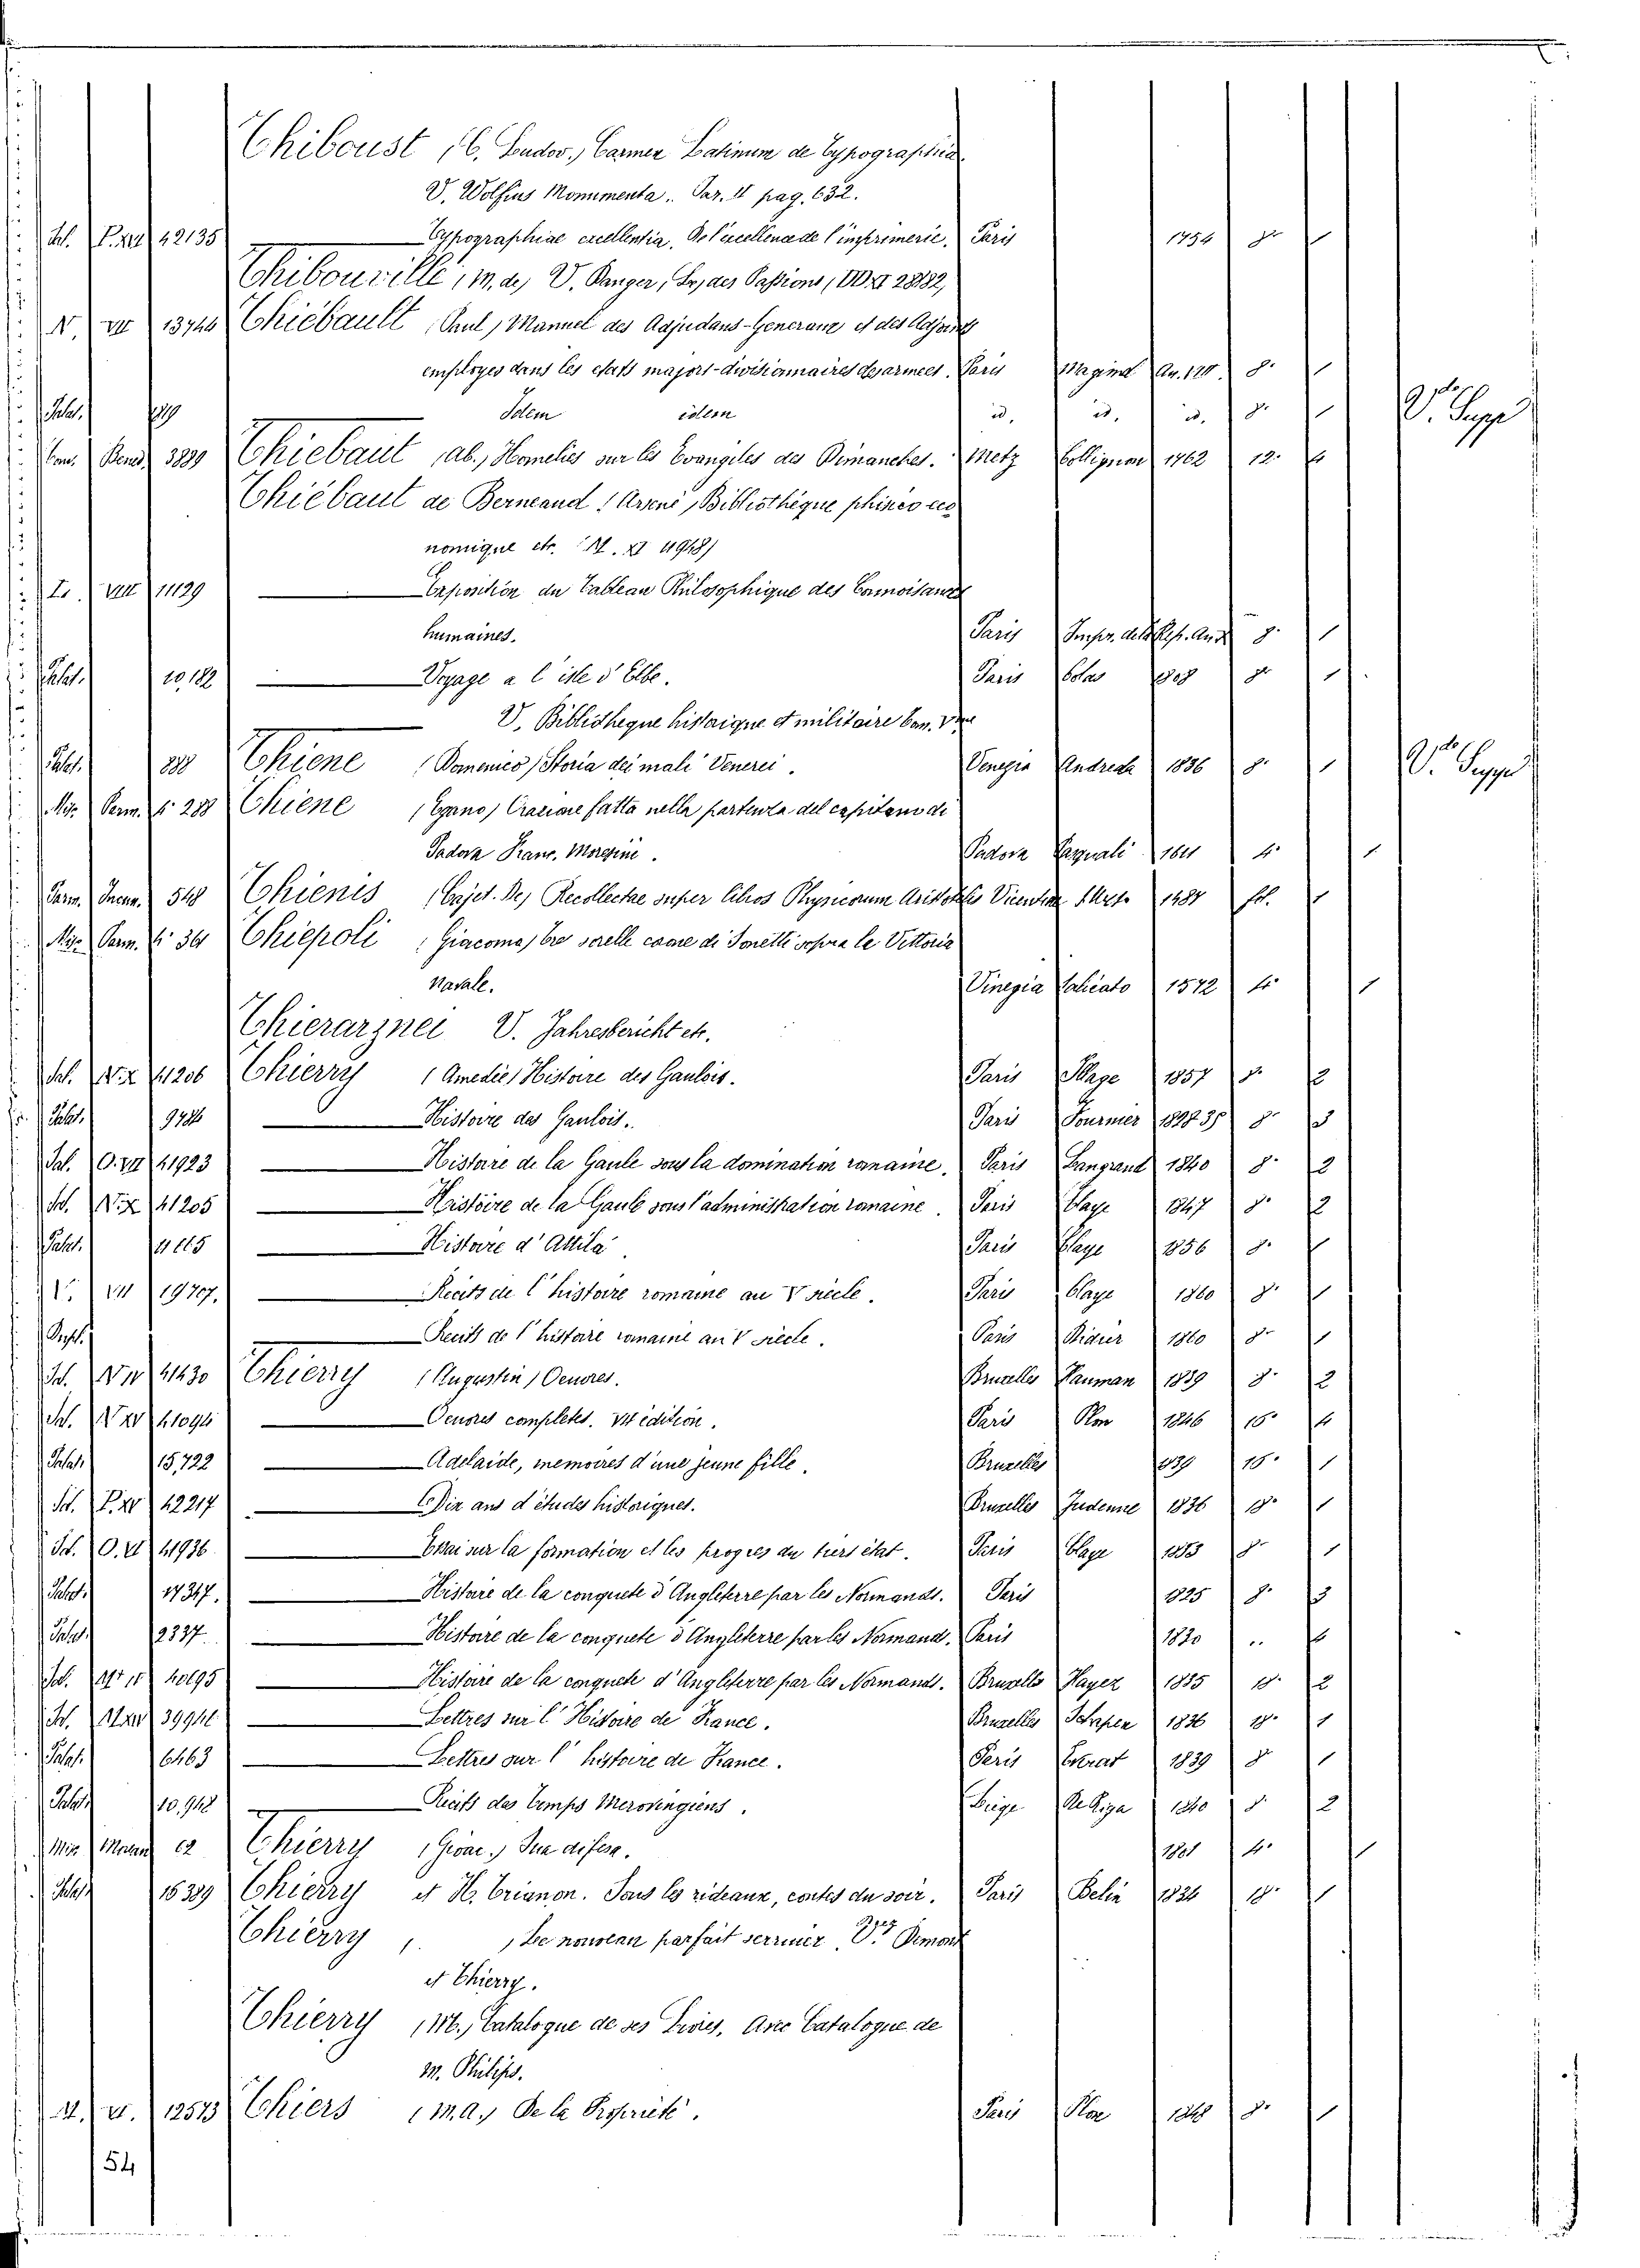 Thiboust (C. Ludov.) Carmen Latinum de Typographia
V. Wolfius Monumenta. Par. II pag. 632.
Sal. P. XII 42135 Typographiae excellentia, De l'excellence de l'imprimerie. Paris 1754 8°
Thibouville (M. de) V. Danger, (Le) des Passions
N. VII 13744 Thiébault (Paul) Manuel des Adjudans-Generaux et des Adjoints
employes dans les etats majors-divisionnaires des armees. Paris Magimel An. 8° 1
Palat. Idem idem id. id. id. 8° 1 V. Supp
Bened. 3829 Thiebaut (ab.) Homelies sur les Evangiles des Dimanches. Metz Collignon 1762 12° 4
Thiébaut de Berneaud (Arsene) Bibliothèque
nomique etc.
L. VIII 11129 Exposition du Tableau Philosophique des Connoisances
humaines. Paris Impr. de la Rep. 8° 1
Palat. 10,182 Voyage a l'isle d'Elbe. Paris Colas 1808 8° 1
V. Bibliotheque historique et militaire
Palat. Thiene (Domenico) Storia dei mali Venerei. Venezia Andreola 1836 8° 1 V. Supp
Mis. Parm. 4° 288 Thiene (Egano) Orazione fatta nella partenza del capitano di
Padova Franc. Morosini. Padova Pasquali 1611 4° 1
Parm. Incun. 548 Thienis (Gajet. De) Recollectae super libros Physicorum Aristotelis Vicentiae 1487 fol.
Mis. Parm. 4° 36 Thiepoli (Giacomo) Tre sorelle corone di Sonetti sopra la Vittoria
Navale. Vinegia Salicato 1572 4° 1
Thierarznei V. Jahresbericht etc.
Sal. N. X 41206 Thierry (Amedée) Histoire des Gaulois. Paris Plage 1857 8° 2
Palat. Histoire des Gaulois. Paris Fournier 8° 3
Sal. O. VII 41923 Histoire de la Gaule sous la domination romaine. Paris Langrand 1840 8° 2
Sal. N. X 41205 Histoire de la Gaule sous l'administration romaine. Paris Claye 1847 8° 2
Palat. Histoire d'Attila Paris Claye 1856 8°
V. VII 19707. Recits de l'histoire romaine au V siècle. Paris Claye 1860 8°
Recits de l'histoire romaine au V siècle. Paris Didier 1860 8° 1
41430 Thierry (Augustin) Oeuvres. Bruxelles Hauman 1839 8° 2
41094 Oeuvres completes. VII édition. Paris 1846 16° 4
Palat. 15,722 Adelaide, memoires d'une jeune fille. Bruxelles 1839 16° 1
Sal. P. XV 42217 Dix ans d'études historiques. Bruxelles 1836 18° 1
Sal. O. VI 41936 Essai sur la formation et les progres du tiers état. Paris Claye 1853 8° 1
Palat. 17347. Histoire de la conquete d'Angleterre par les Normands. Paris 1825 8° 3
Palat. 2337. Histoire de la conquete d'Angleterre par les Normand. Paris 1830 .. 4
40195 Histoire de la conquete d'Angleterre par les Normands. Bruxelles Hayez 1835 18° 2
Lettres sur l'Histoire de France. Bruxelles 1836 18° 1
Palat. 6463 Lettres sur l'histoire de France. Paris Everat 1839 8° 1
Palat. 10,948 Recits des Temps Merovingiens. 1840 8° 2
Mis. Thierry (Giac.) Sua difesa. 1801 4° 1
Palat. 16389 Thierry et H. Trianon. Sous les rideaux, contes du soir. Paris Belin 1834 18° 1
Thierry (. ) Le nouveau parfait serrurier V.
et Thierry.
Thierry (M.) Catalogue de ses Livres, Avec Catalogue de
M. Philips.
VI. 12573 Thiers (M. A.) De la Propriété. Paris 1848 8° 1
54